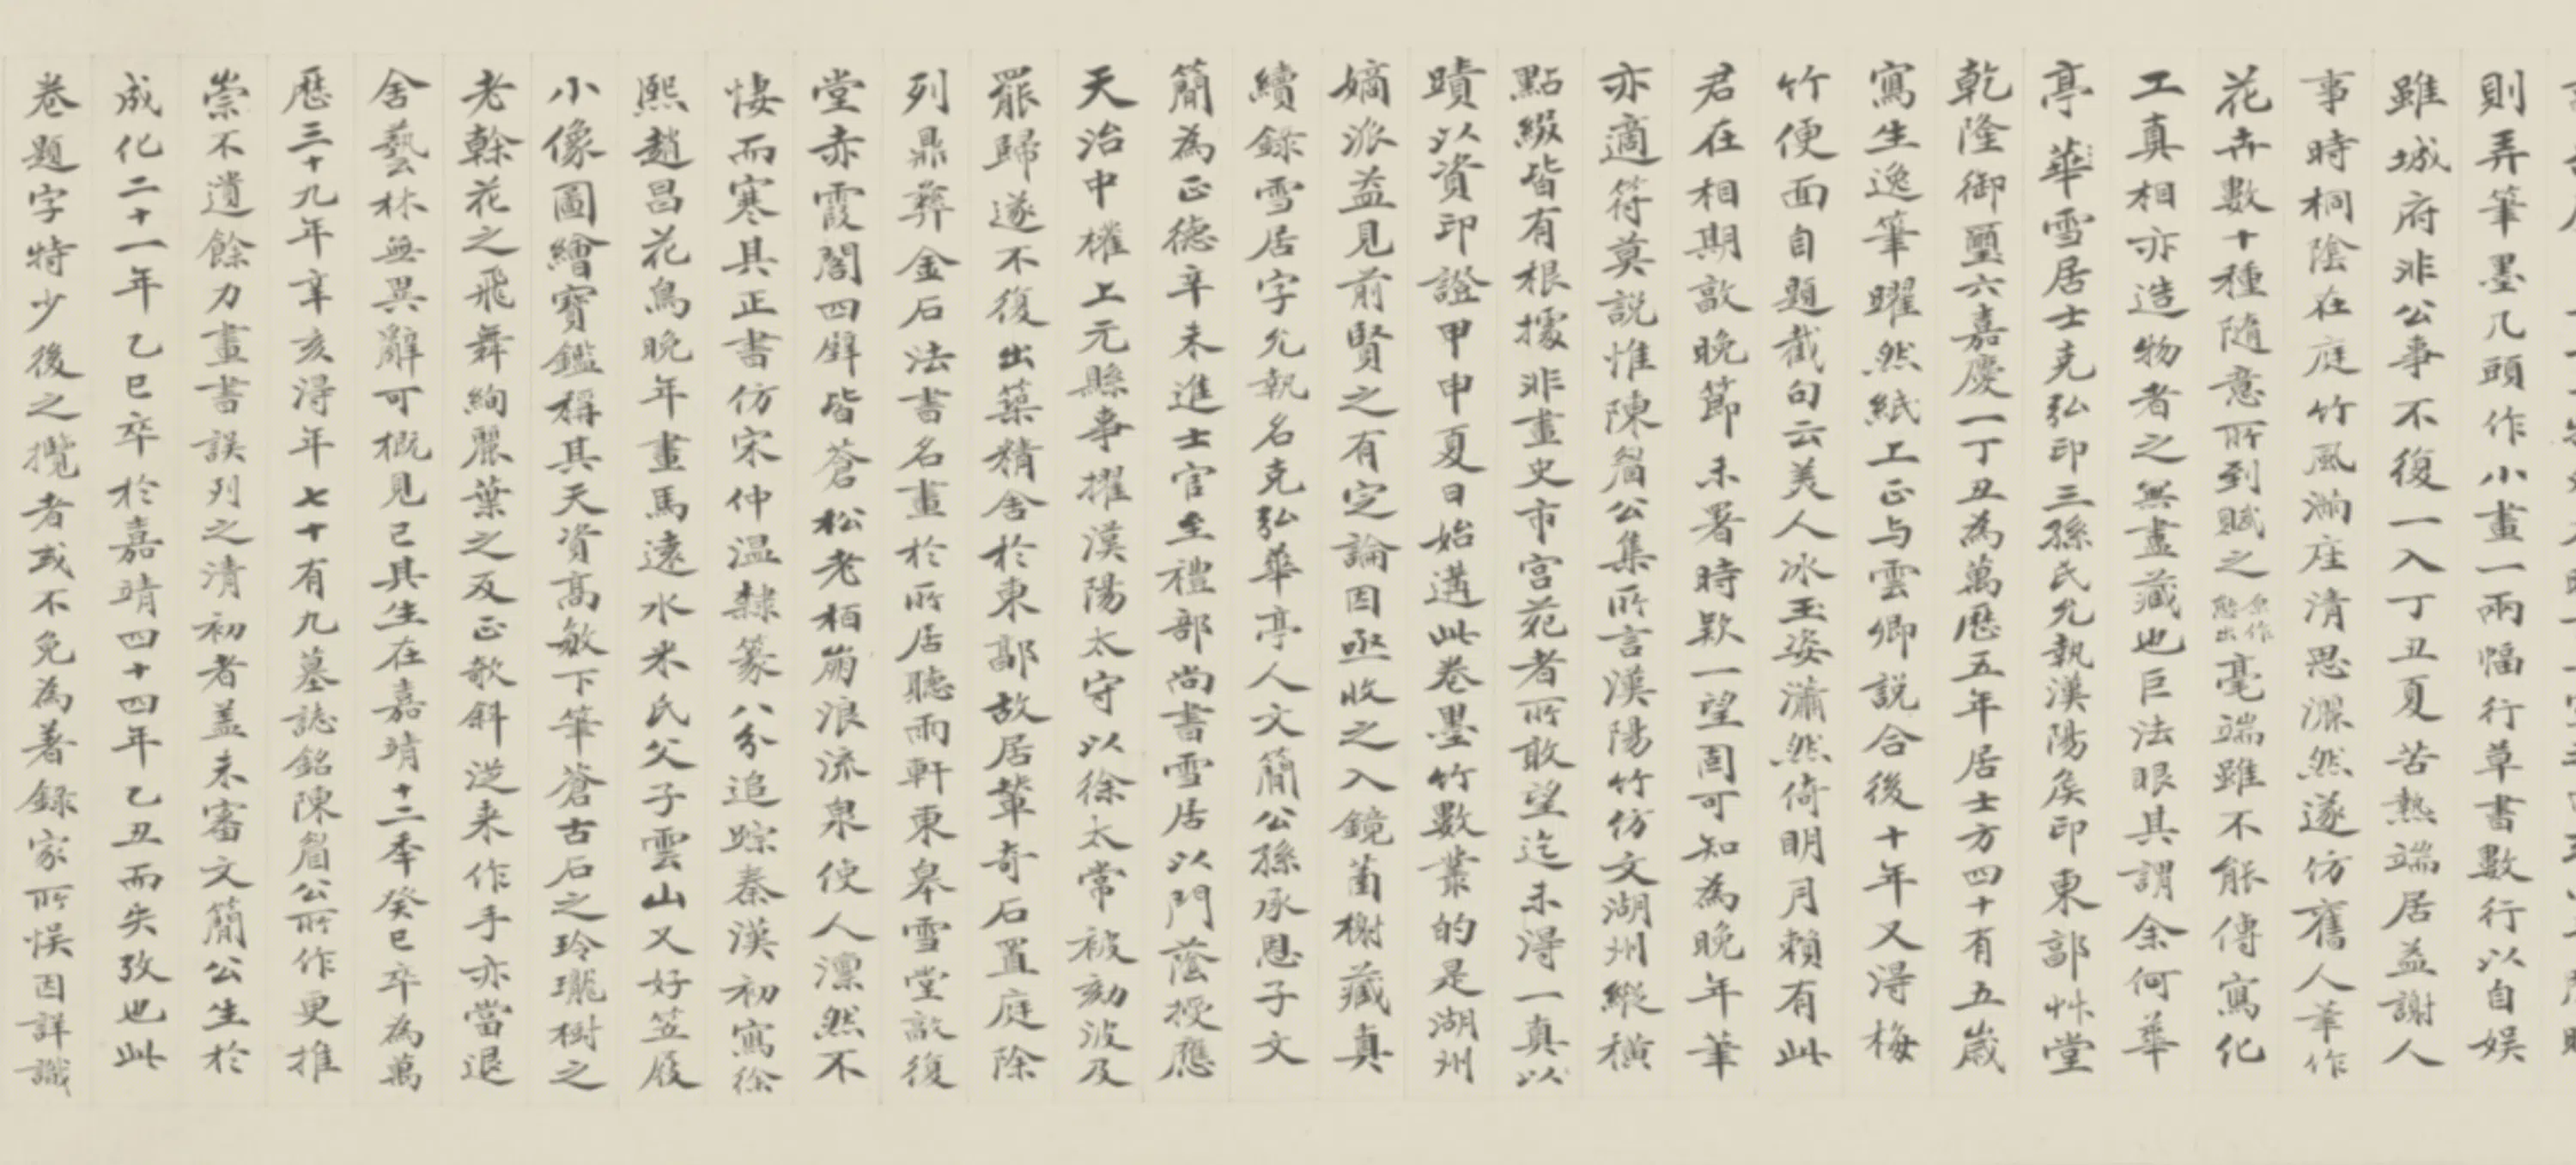 則弄筆墨几頭作小畫一兩幅行草書數行以自娛
雖城府非公事不復一入丁丑夏苦熱端居益謝人
事時桐陰在庭竹風滿座清思灑然遂仿舊人筆作
花卉數十種隨意所到賦之亳端雖不能傳寫化
工真相亦造物者之無盡藏也巨法眼其謂余何華
亭華雪居士克弘印三孫氏允執漢陽矦印東郭艸堂
乾隆御璽六嘉慶一丁丑為萬厯五年居士方四十有五歲
寫生逸筆曜然紙上正与雲卿説合後十年又得梅
竹便面自題截句云美人冰玉姿瀟然倚明月賴有此
君在相期歲晚節未署時款一望固可知為晚年筆
亦適符莫説惟陳眉公集所言漢陽竹仿文湖州縱橫
點綴皆有根據非畫史市宫苑者所敢望迄未得一真以
蹟以資印證甲申夏日始遘此卷墨竹數叢的是湖州
嫡派益見前賢之有定論因亟收之入鏡菌榭藏真
續錄雪居字允執名克弘華亭人文簡公孫承恩子文
簡為正德辛未進士官至禮部尚書雪居以門蔭授應
天治中榷上元縣事擢漢陽太守以徐太常被劾波及
罷歸遂不復出築精舍於東郭故居輦奇石置庭除
列鼎彝金石法書名畫於所居聽雨軒東皋雪堂敞復
堂赤霞閣四壁皆蒼松老栢崩浪流泉使人凛然不
悽而寒其正書仿宋仲温隸篆八分追踪秦漢初寫徐
熙趙昌花鳥晚年畫馬遠水米氏父子雲山又好笠屐
小像圖繪寶鑑稱其天資高敏下筆蒼古石之玲瓏樹之
老榦花之飛舞絢麗葉之反正欹斜從来作手亦當退
舍藝林無異辭可概見已其生在嘉靖十二秊癸巳卒為萬
厯三十九年辛亥得年七十有九墓誌銘陳眉公所作更推
崇不遺餘力畫書誤列之清初者盖未審文簡公生於
成化二十一年乙巳卒於嘉靖四十四年乙丑而失攷也此
卷題字特少後之攬者或不免為著録家所悞因詳識